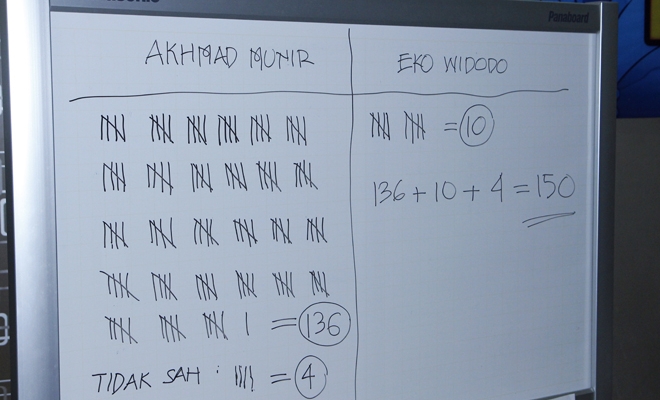 Panaboard
AKHMAD MUNIR
EKO WIDODO
= 10
136 + 10 + 4 = 150
1 = 136
TIDAK SAH : = 4